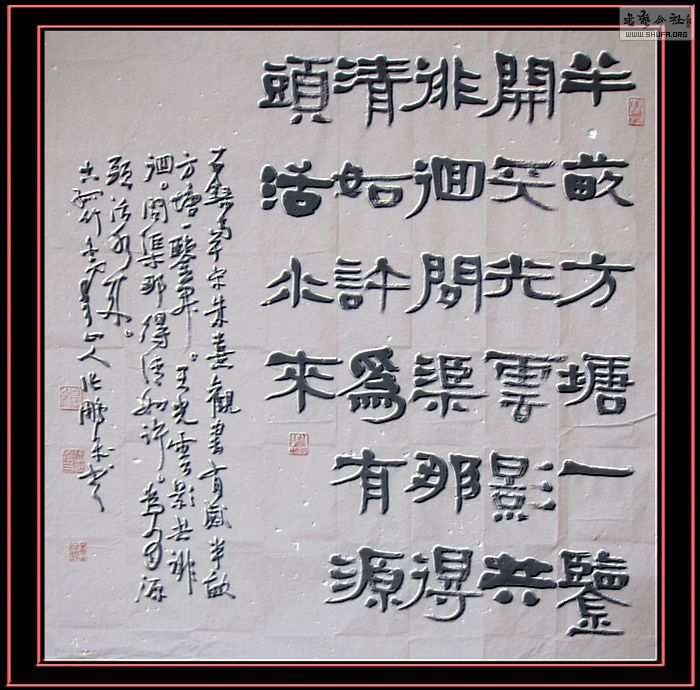 半畝方塘一鑒
開天光雲影共
徘徊問渠那得
清如許爲有源
頭活水來
宋朱熹觀書有感半畝
方塘一鑒开。天光雲影共徘
徊。問渠那得清如許。為有源
頭活水來。
山人
书艺公社
WWW.SHUFA.ORG